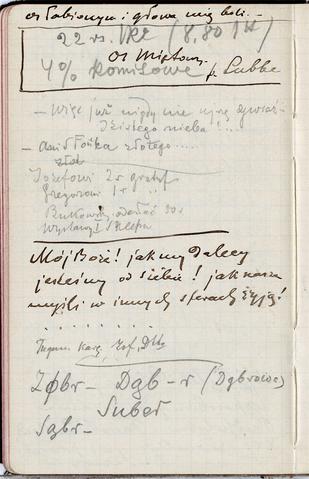 osłabionym i głowa mię boli. —
22 rs. Vkl (8,80 
Os Miętowy
4% Komisowe p. Lubbe
— Więc już nigdy nie ujrę
Dzistego nieba!...
— ani słońka złotego....
Józefowi 2 r gratyf
Gregorowi 1 r "
Rutkowski odesłać 30 r
Wystawy Sklepu
Mój Boże! jak my dalecy
jesteśmy od siebie! jak nasze
myśli w innych sferach żyją!
. . . . . . . .
Zøbr— Dgb—r (Dgbrowa)
Suber
Sgbr—